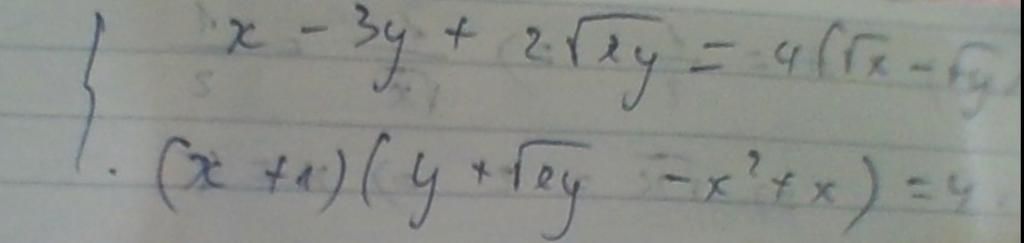 x - 3y + 2√xy = 4(√x - √y)
(x + 1)(y + √xy - x² + x) = 4